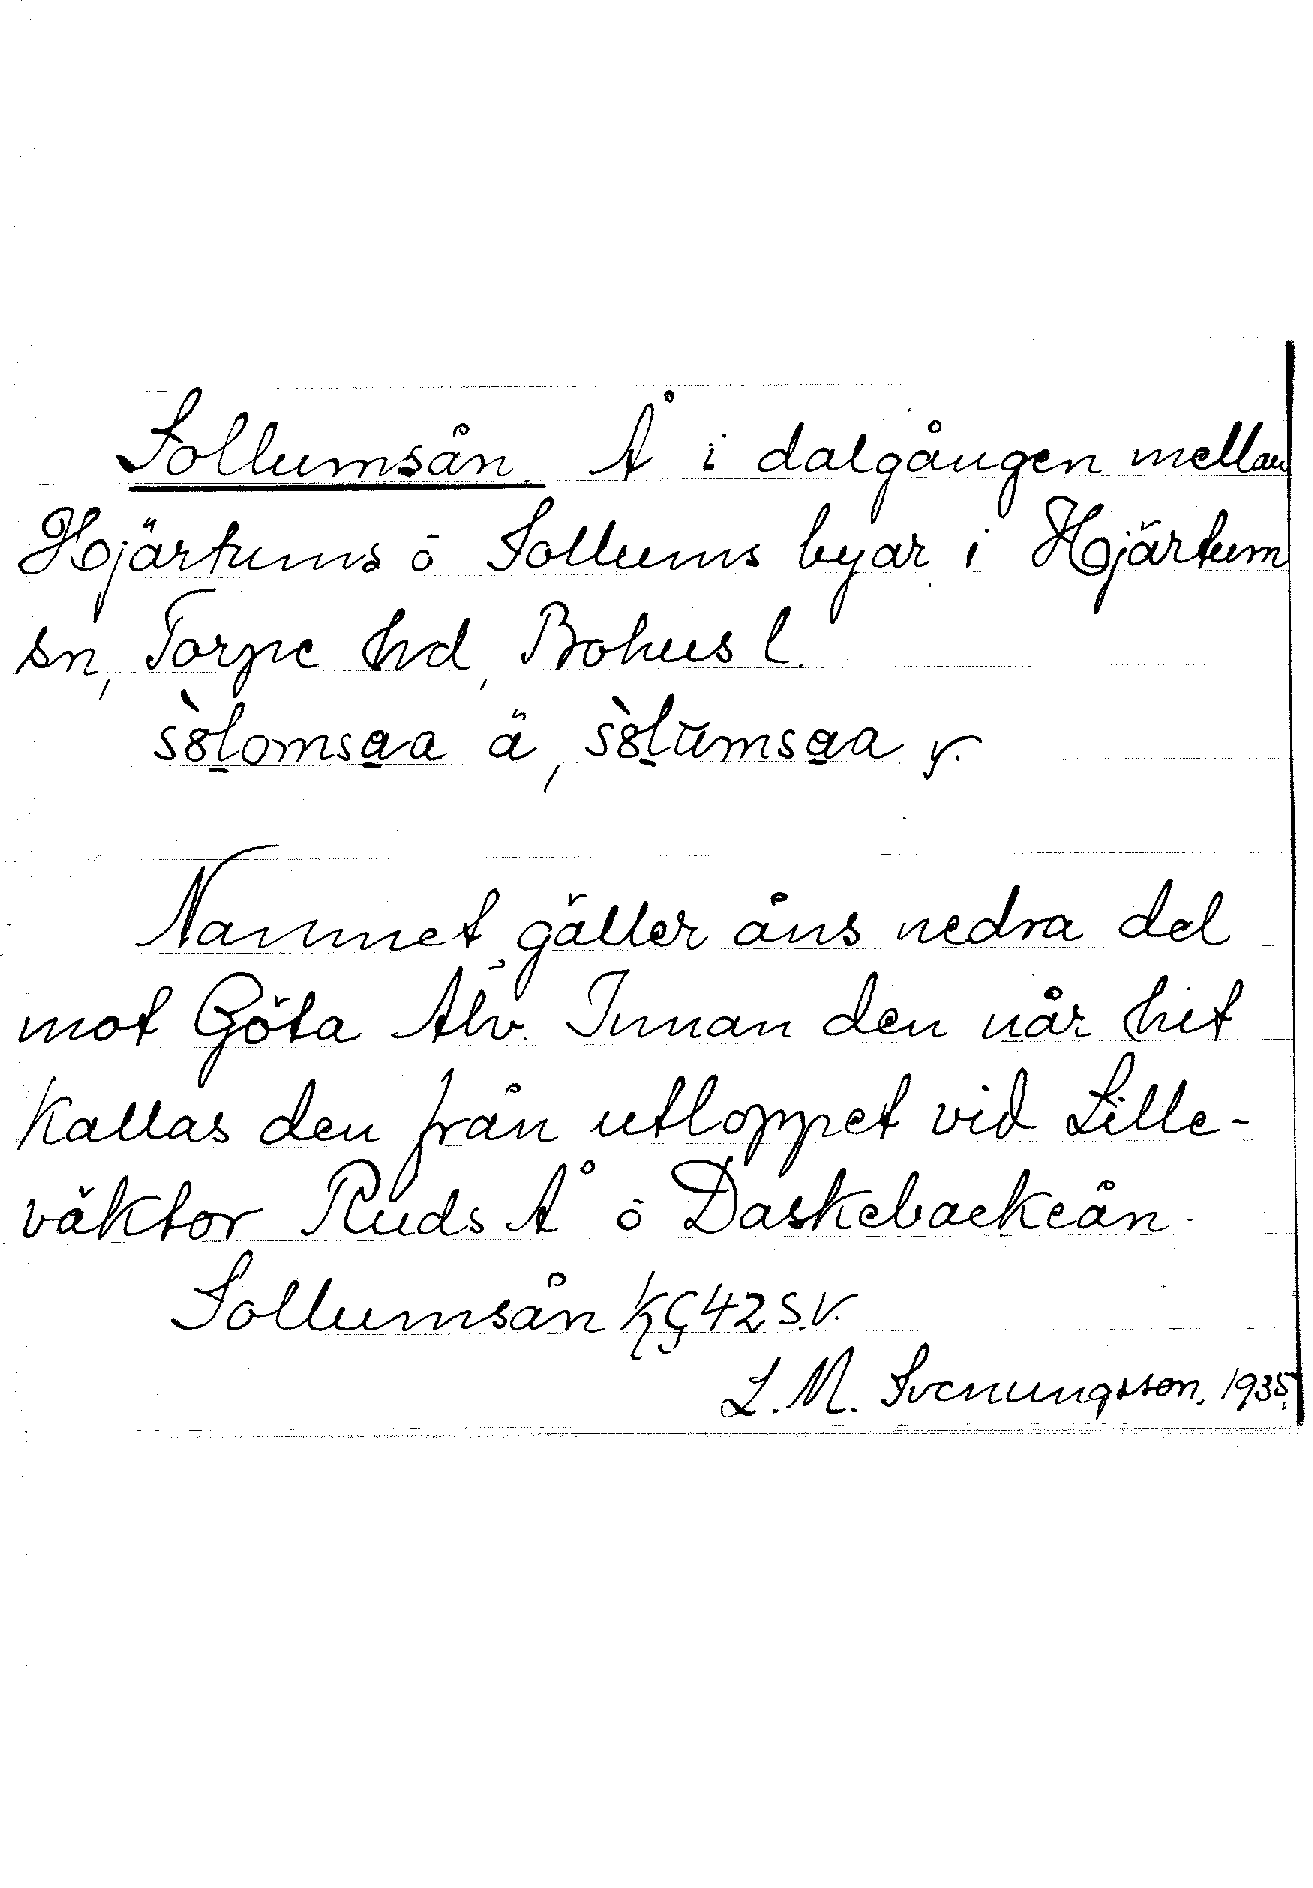 Sollumsån Å i dalgången mellan
Hjärtums o Sollums byar i Hjärtum
sn, Torpe hd, Bohus l.
ä, y.
Namnet gäller åns nedra del
mot Göta Älv. Innan den når hit
kallas den från utloppet vid Lille-
väktor Ruds Å o Daskebackeån.
Sollumsån KG 42 S.V.
L. M. Svenungsson. 1935.